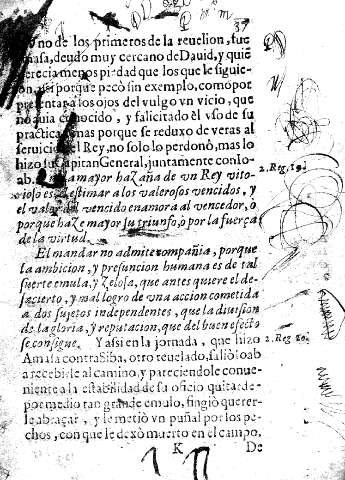 37
Vno de los primeros de la reuelion, fue
Amasa, deudo muy cercano de Dauid, y quiē
merecia menos piedad que los que le siguie-
ron, assi porque pecò sin exemplo, como por
presentar a los ojos del vulgo vn vicio, que
no auia conocido, y facilitado èl vso de su
practica, mas porque se reduxo de veras al
seruicio del Rey, no solo lo perdonò, mas lo
hizo su Capitan General, juntamente con Io-
ab. La mayor hazaña de vn Rey vito-
rioso es estimar a los valerosos vencidos, y
el valor del vencido enamora al vencedor, ò
porque haze mayor su triunfo, ò por la fuerça
de la virtud.
2. Reg. 19.
El mandar no admite compañia, porque
la ambicion, y presuncion humana es de tal
suerte emula, y zelosa, que antes quiere el de-
sacierto, y mal logro de vna accion cometida
a dos sujetos independentes, que la diuision
de la gloria, y reputacion, que del buen efecto
se consigue. Y assi en la jornada, que hizo
2. Reg. 20.
Amasa contra Siba, otro reuelado, saliò Ioab
a recebirle al camino, y pareciendole conue-
niente a la estabilidad de su oficio quitar de
por medio tan grande emulo, fingiò querer-
le abraçar, y le metiò vn puñal por los pe-
chos, con que le dexò muerto en el campo.
K De